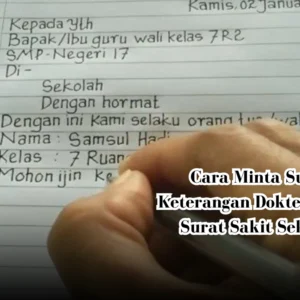 Kamis, 02 Janua
Kepada Yth
Bapak/Ibu guru wali kelas 7R2
SMP-Negeri 17
Di-
Sekolah
Dengan hormat
Dengan ini kami selaku orang tua/wal
Nama : Samsul Hadi
Kelas : 7 Ruang
Mohon ijin ke
Cara Minta Su
Keterangan Dokte
Surat Sakit Sel